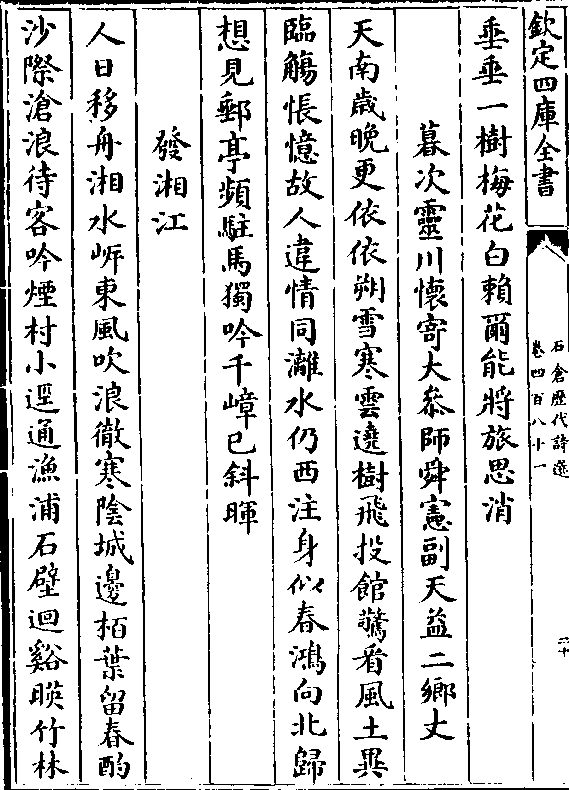 欽定四庫全書
石倉歴代詩選
卷四百八十一
二十
垂垂一樹梅花白賴爾能將旅思消
暮次靈川懷寄大叅師舜憲副天益二鄉丈
天南歲晚更依依朔雪寒雲遶樹飛投館驚看風土異
臨觴悵憶故人違情同灕水仍西注身似春鴻向北歸
想見郵亭頻駐馬獨吟千嶂已斜暉
發湘江
人日移舟湘水㟁東風吹浪徹寒陰城邊栢葉留春酌
沙際滄浪待客吟煙村小逕通漁浦石壁迴谿暎竹林